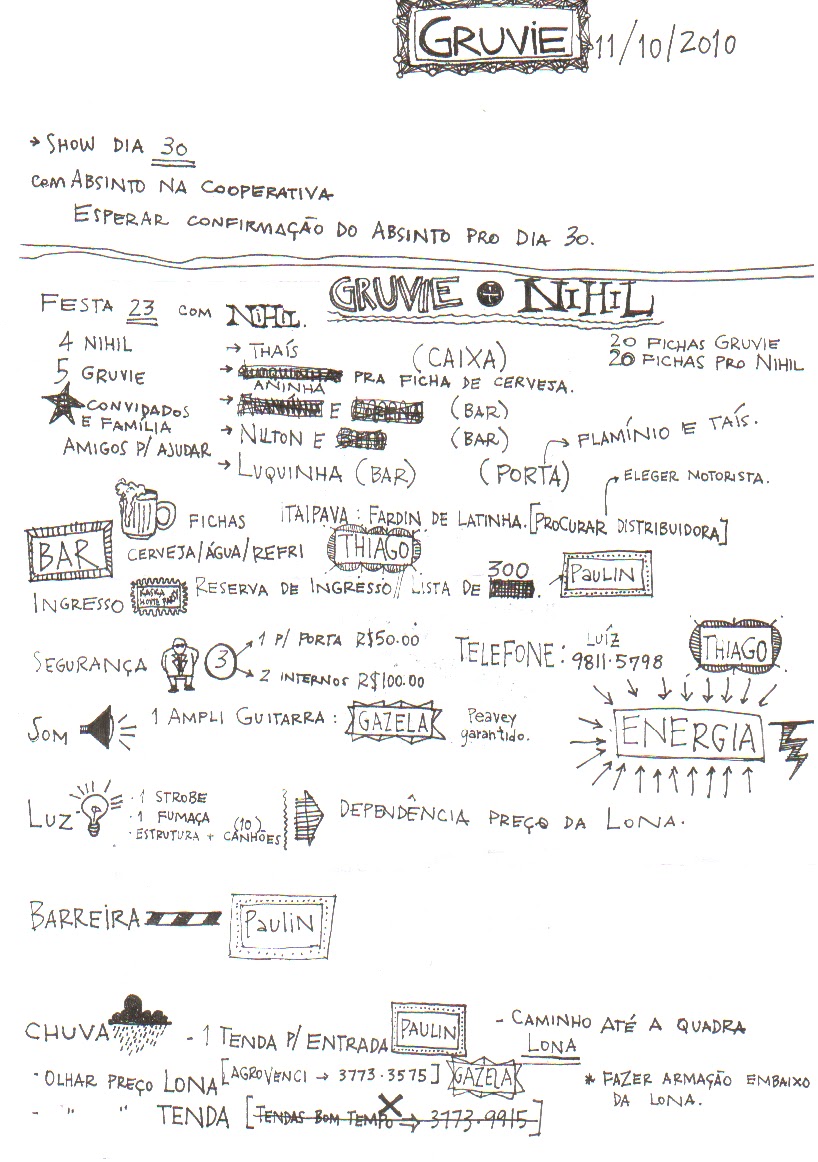 GRUVIE 11/10/2010
→ SHOW DIA 30
COM ABSINTO NA COOPERATIVA
ESPERAR CONFIRMAÇÃO DO ABSINTO PRO DIA 30.
FESTA 23 COM NIHIL. GRUVIE + NIHIL
4 NIHIL → THAÍS (CAIXA) 20 FICHAS GRUVIE
5 GRUVIE → ANINHA PRA FICHA DE CERVEJA. 20 FICHAS PRO NIHIL
★ CONVIDADOS → E (BAR)
E FAMÍLIA
AMIGOS P/ AJUDAR → NILTON E (BAR) → FLAMÍNIO E TAÍS.
→ LUQUINHA (BAR) (PORTA) ELEGER MOTORISTA.
BAR FICHAS ITAIPAVA : FARDIN DE LATINHA. [PROCURAR DISTRIBUIDORA]
CERVEJA/ÁGUA/REFRI THIAGO
INGRESSO RESERVA DE INGRESSO // LISTA DE 300. → PAULIN
SEGURANÇA 3 1 P/ PORTA R$50.00 TELEFONE: LUÍZ THIAGO
2 INTERNOS R$100.00 9811.5798
SOM 1 AMPLI GUITARRA : GAZELA Peavey garantido. ENERGIA
LUZ · 1 STROBE
· 1 FUMAÇA DEPENDÊNCIA PREÇO DA LONA.
· ESTRUTURA + (10) CANHÕES
BARREIRA PAULIN
CHUVA - 1 TENDA P/ ENTRADA PAULIN - CAMINHO ATÉ A QUADRA
LONA
- OLHAR PREÇO LONA [AGROVENCI → 3773.3575] GAZELA * FAZER ARMAÇÃO EMBAIXO
DA LONA.
- " " TENDA [TENDAS BOM TEMPO → 3773.9915]